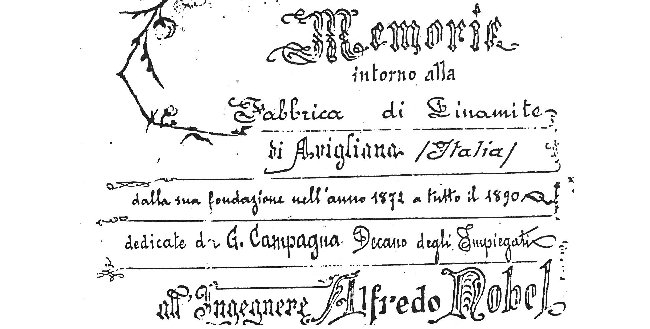 Memorie
intorno alla
Fabbrica di Dinamite
di Avigliana /Italia/
dalla sua fondazione nell'anno 1872 a tutto il 1890
dedicate da G. Campagna Decano degli Impiegati
all'Ingegnere Alfredo Nobel